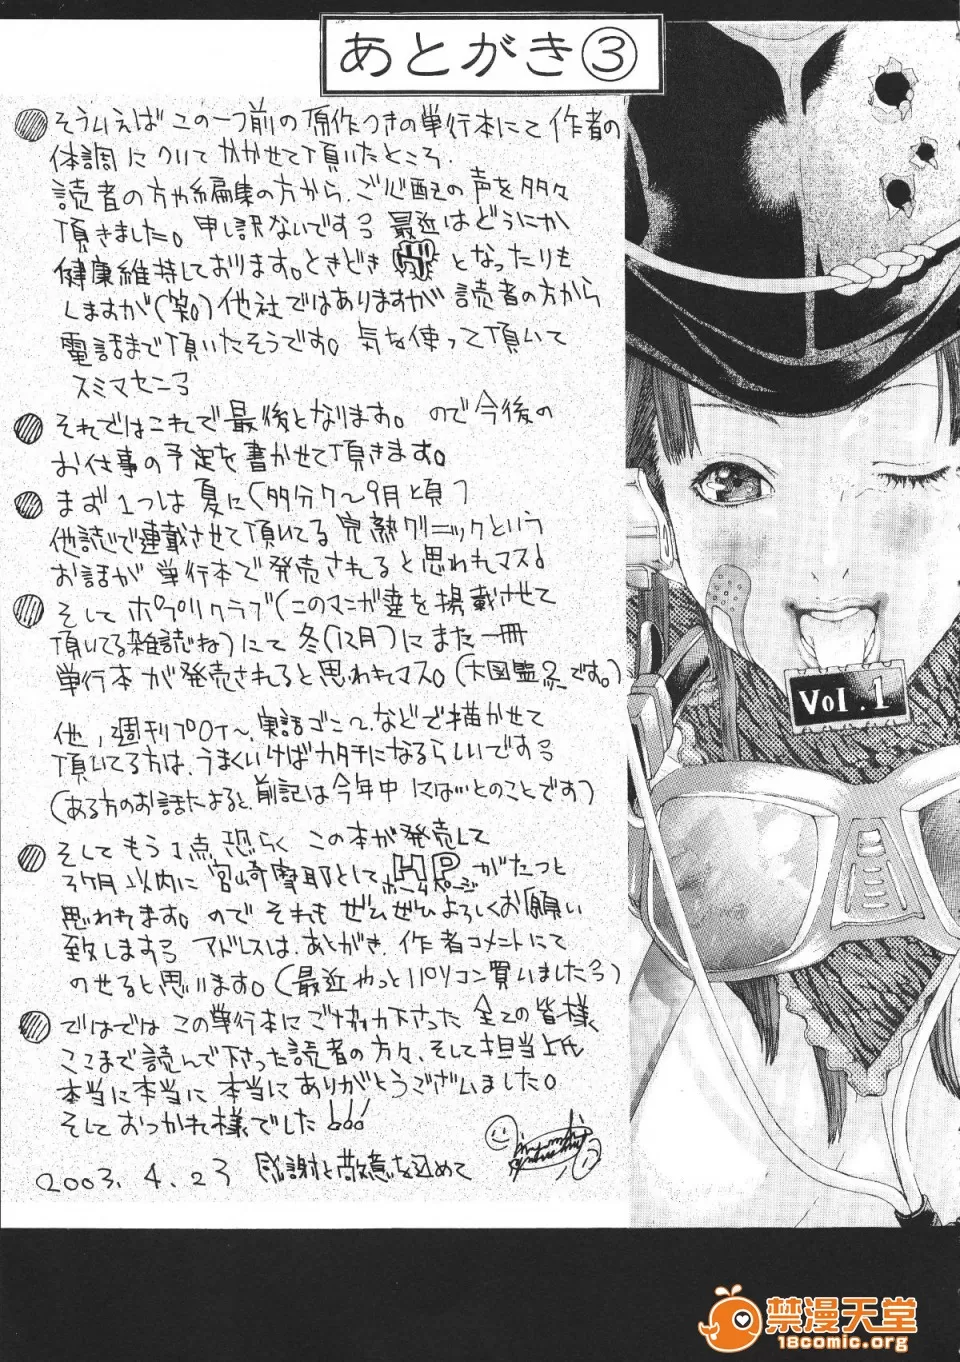 あとがき③
そういえばこの一つ前の原作つきの単行本にて作者の
体調についてかかせて頂いたところ、
読者の方や編集の方から、ご心配の声を多々
頂きました。申し訳ないですう 最近はどうにか
健康維持しております。ときどき となったりも
しますが(笑。)他社ではありますが読者の方から
電話まで頂いたそうです。気を使って頂いて
スミマセンう
それではこれで最後となります。ので今後の
お仕事の予定を書かせて頂きます。
まず1つは夏に(多分7〜9月頃)
他誌で連載させて頂いてる完熟クリニックという
お話が単行本で発売されると思われマス。
そしてポプリクラブ(このマンガ達を掲載させて
頂いてる雑誌ね)にて冬(12月)にまた一冊
単行本が発売されると思われマス。(大図鑑 です。)
他、週刊プロイ〜、実話ごこ〜、などで描かせて
頂いてる方は、うまくいけばカタチになるらしいですう
(ある方のお話によると、前記は今年中にはいとのことです)
そしてもう1点、恐らくこの本が発売して
3ヶ月以内に宮崎摩耶としてHPがたつと
ホームページ
思われます。のでそれもぜひぜひよろしくお願い
致しますう アドレスは、あとがき、作者コメントにて
のせると思います。(最近やっとパソコン買いましたう)
ではではこの単行本にご協力下さった全ての皆様
ここまで読んで下さった読者の方々、そして担当上氏
本当に本当に本当にありがとうございました。
そしておつかれ様でした!!!
2003.4.23 感謝と敬意を込めて
Vol.1
禁漫天堂
18comic.org